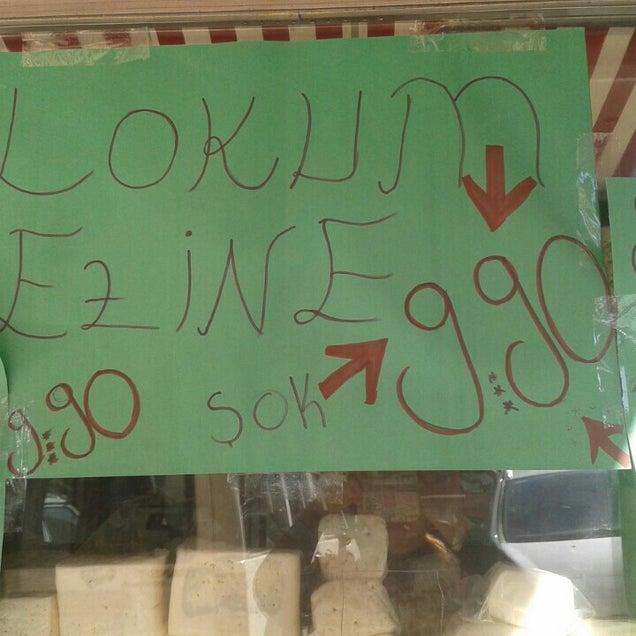 LOKUM
EZİNE 9.90
9.90 ŞOK